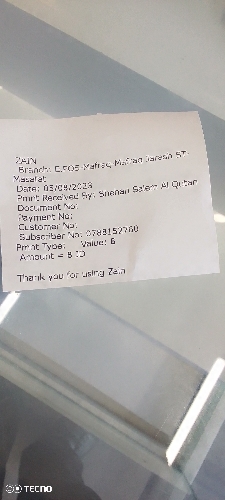 ZAIN
Branch: E.POS-Mafraq Mafraq Jarash ST.
Masafat
Date: 05/08/2023
Pmnt Received By: Al Qutan
Document No:
Payment No:
Customer No:
Subscriber No: 0788152760
Pmnt Type: Value: 6
Amount = 8 JD
Thank you for using Zain
TECNO